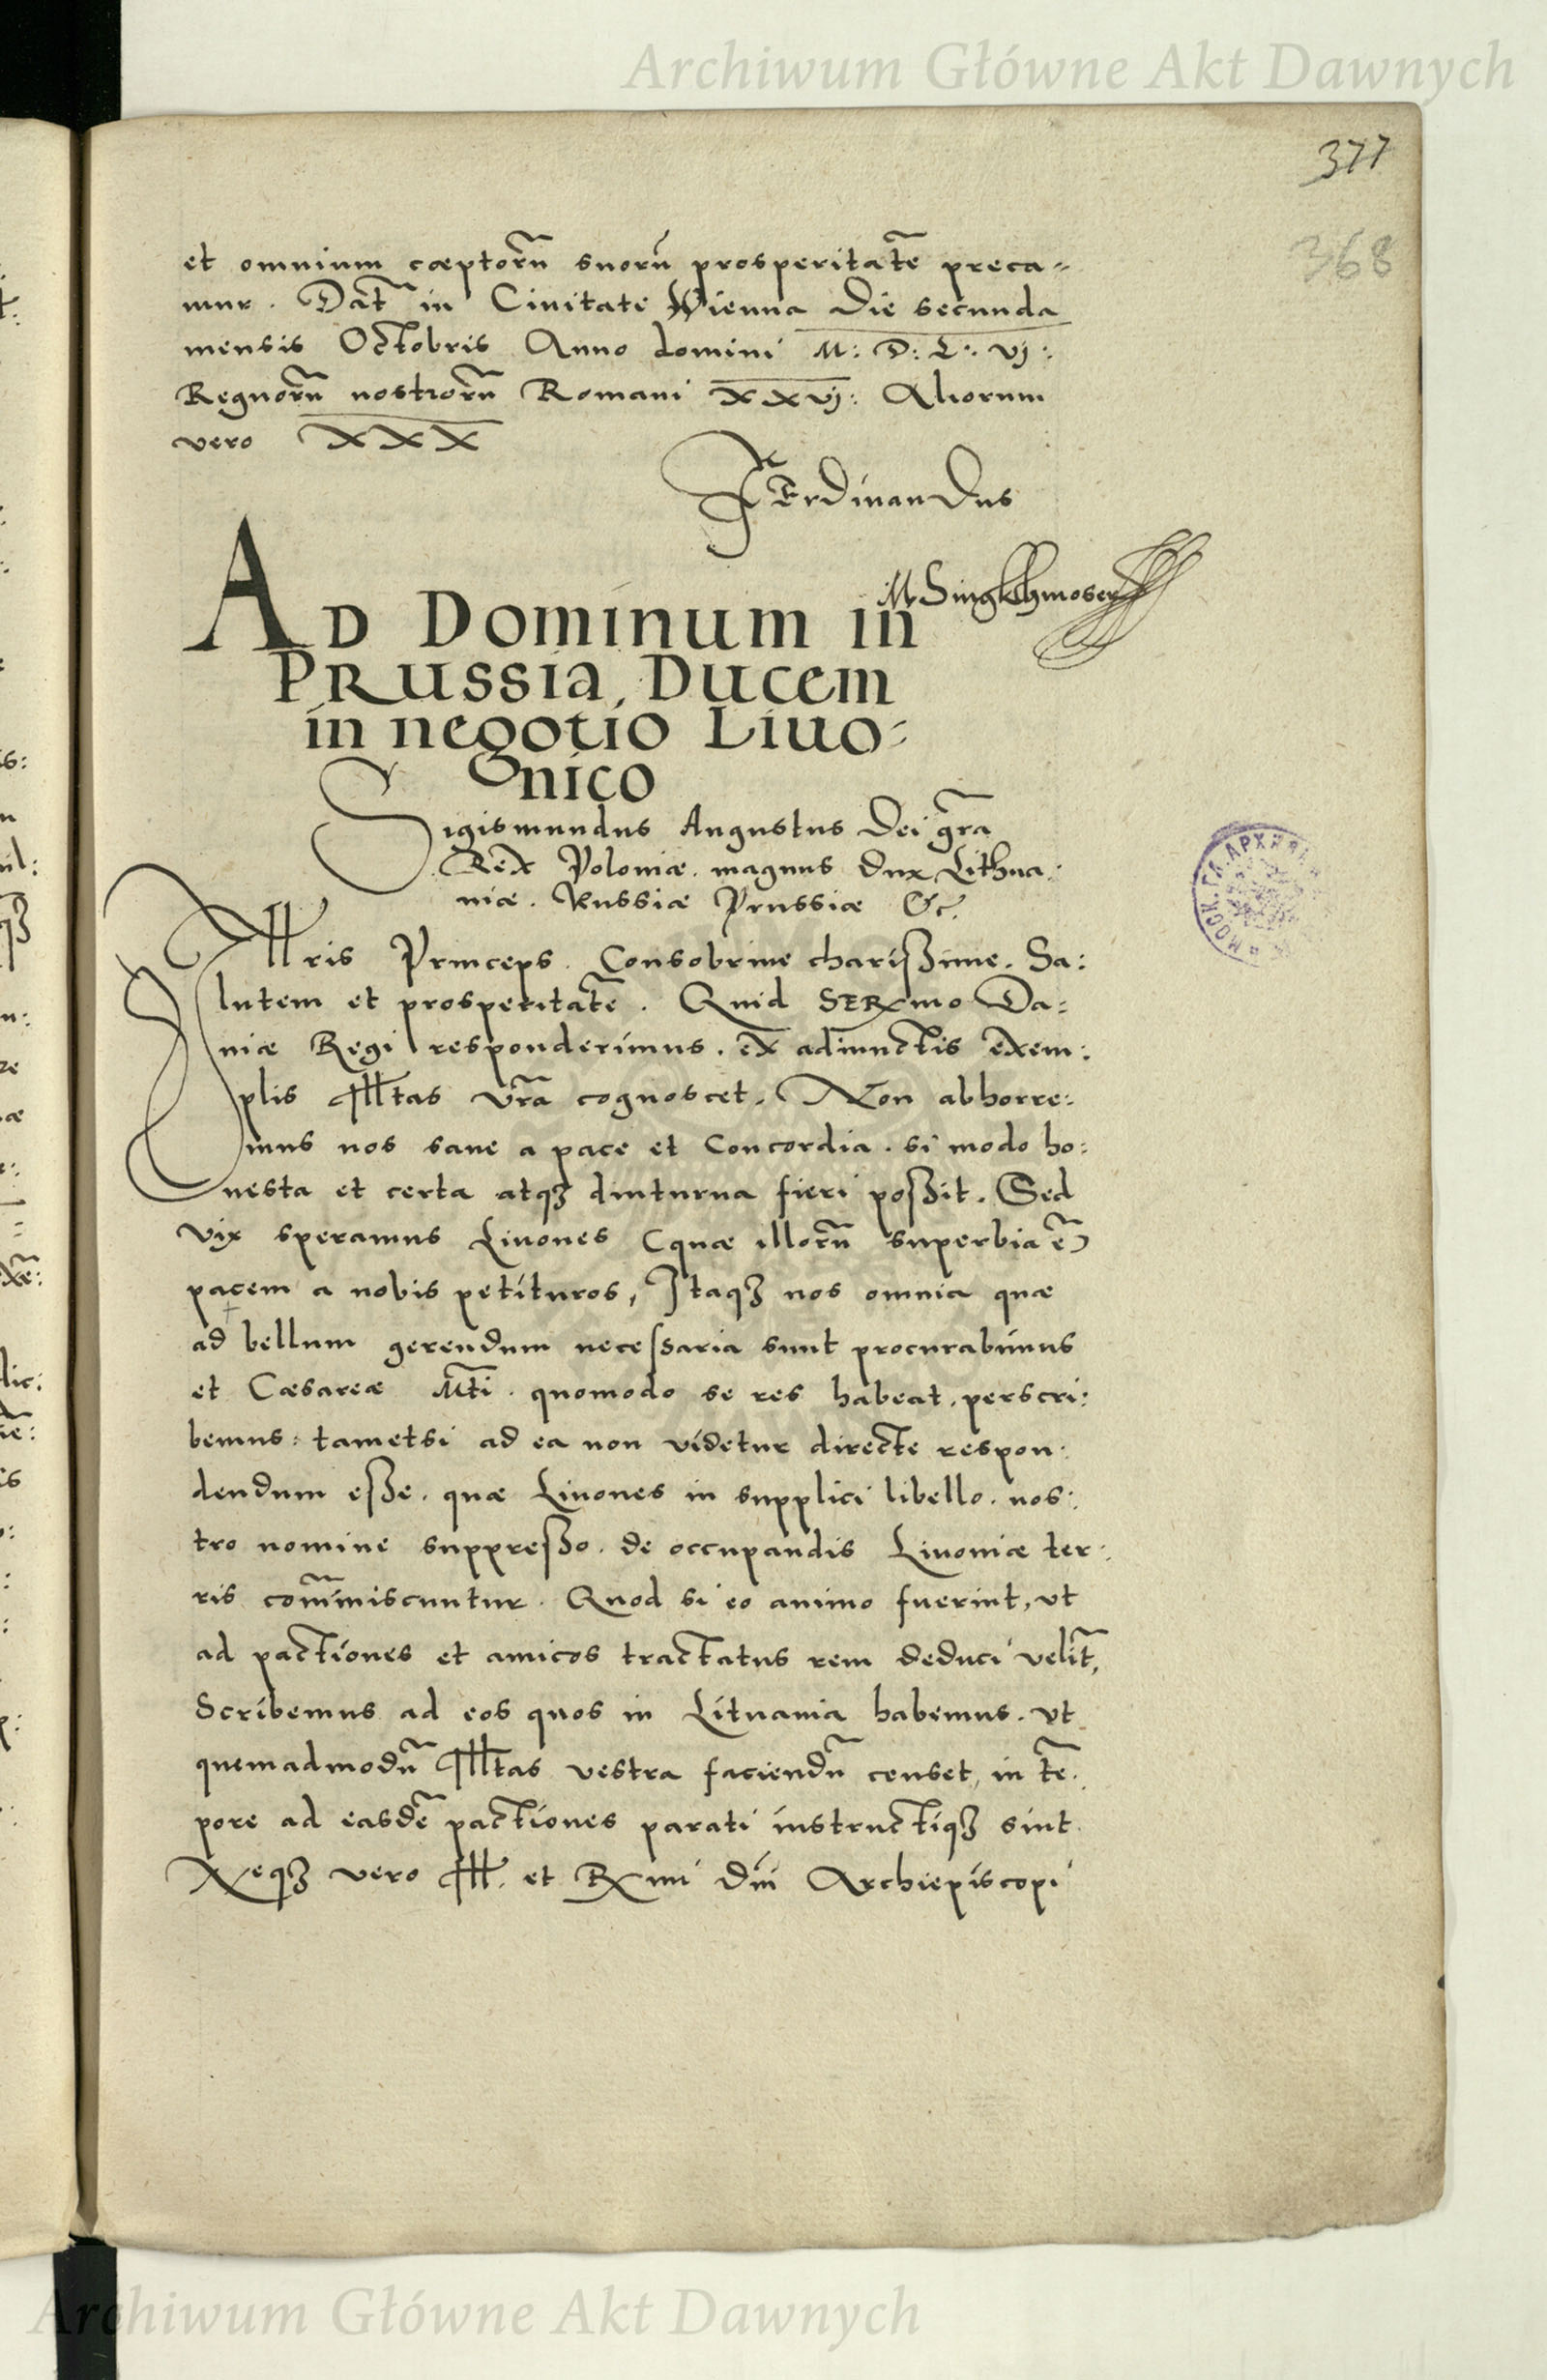 Archiwum Główne Akt Dawnych
377
368
et omnium cœptorũ suorũ prosperitatẽ preca=
mur. Dat̃ in Ciuitate Vienna Die secunda
mensis Octobris Anno domini M: D: L: vj:
Regnorũ nostrorũ Romani XXvj: Aliorum
vero XXX
Ferdinandus
M Singkhmoser
AD Dominum in
Prussia, Ducem
in negotio Liuo=
nico
Sigismundus Augustus Dei gr̃a
Rex Poloniæ. magnus Dux Lithua:
niæ. Russiæ Prussiæ &c.
Illris Princeps. Consobrine charißime. Sa:
lutem et prosperitatẽ. Quid SERmo Da:
niæ Regi responderimus. ex adiunctis exem:
plis Illtas vr̃a cognoscet. Non abhorre:
mus nos sane a pace et Concordia. si modo ho:
nesta et certa atqꝫ diuturna fieri poßit. Sed
vix speramus Liuones (quæ illorũ superbia ẽ)
pacem a nobis petituros, Itaqꝫ nos omnia quæ
ad bellum gerendum necessaria sunt procurabimus
et Cæsareæ Mt̃i. quomodo se res habeat. perscri:
bemus: tametsi ad ea non videtur directe respon:
dendum eße. quæ Liuones in supplici libello. nos:
tro nomine suppreßo. de occupandis Liuoniæ ter:
ris com̃miscuntur. Quod si eo animo fuerint, vt
ad pactiones et amicos tractatus rem deduci velit̃,
Scribemus ad eos quos in Lituania habemus. vt
quemadmodũ Illtas vestra faciendũ censet, in tẽ:
pore ad easdẽ pactiones parati instructiqꝫ sint.
Neqꝫ vero Ill. et Rmi Dñi Archiepiscopi
МОСК. ГЛ. АРХИВ
Archiwum Główne Akt Dawnych